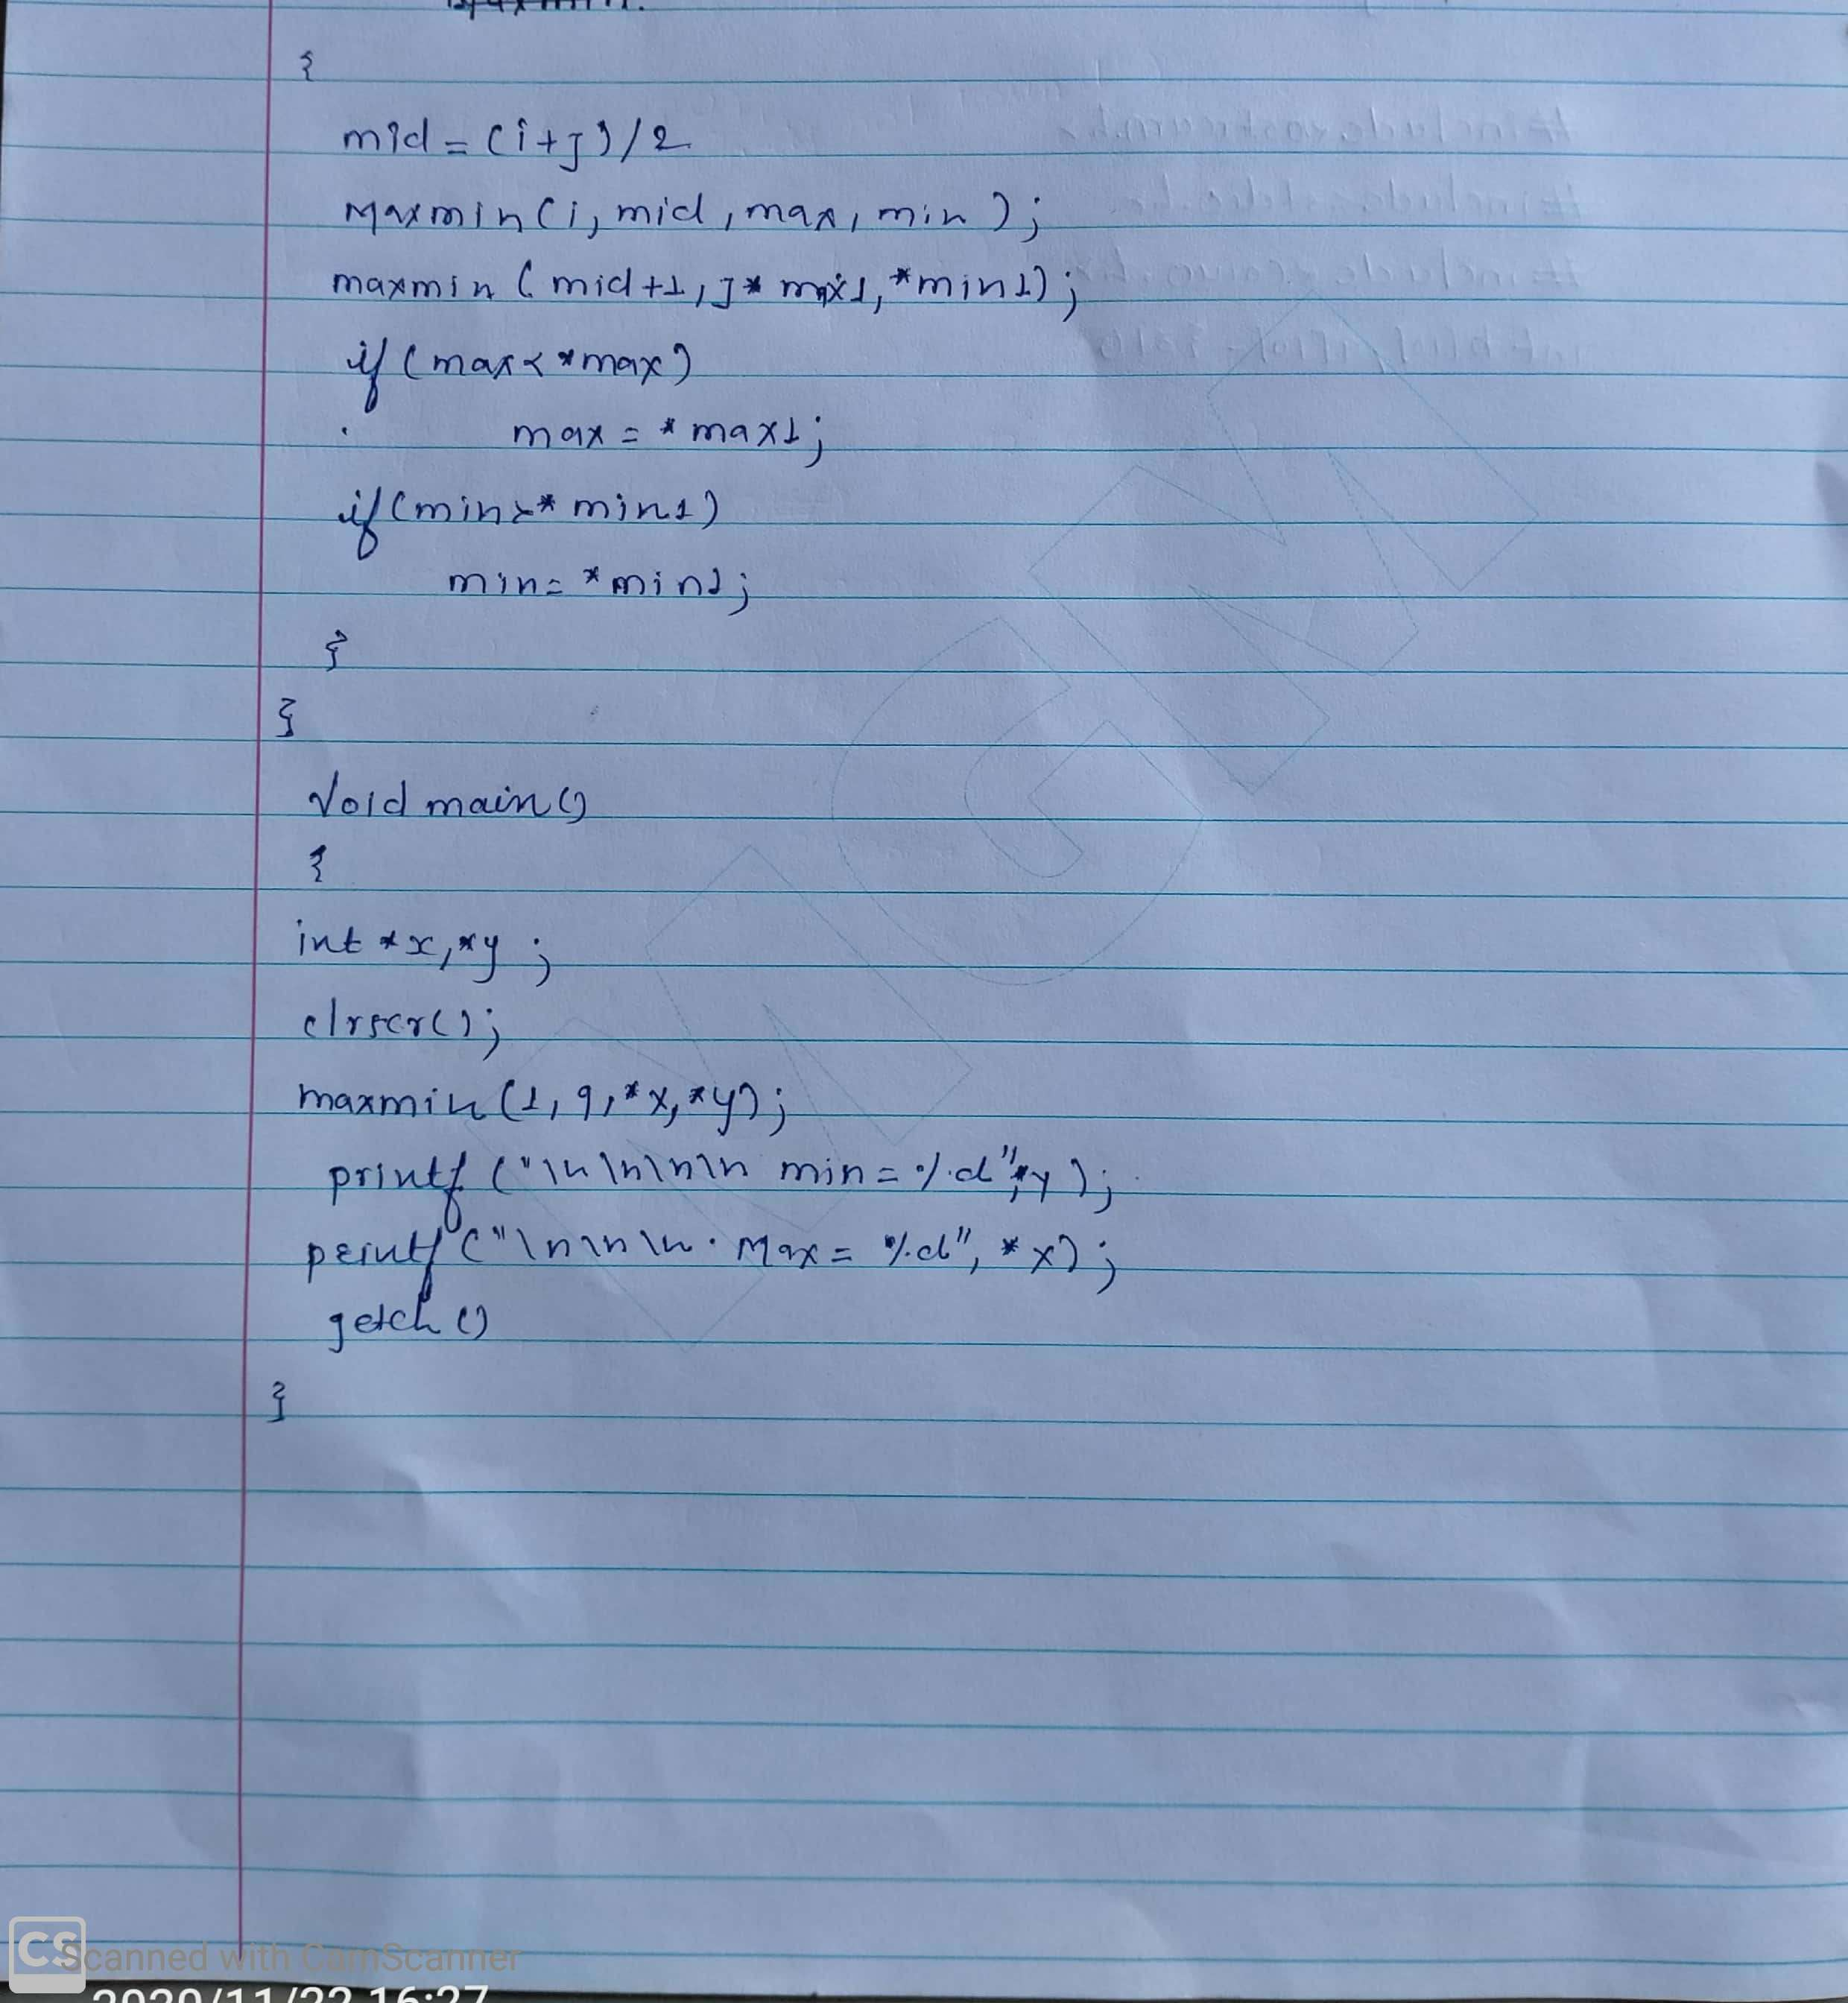 {
mid = (i+j)/2
Maxmin(i, mid, max, min);
maxmin (mid+1, j* max1, *min1);
if (max < *max)
max = *max1;
if (min > * min1)
min = *min1;
}
}
Void main()
{
int *x, *y ;
clrscr();
maxmin (1, 9, *x, *y);
printf ("\n\n\n\n min = %d", *y );
printf ("\n\n\n. Max = %d", *x);
getch ()
}
CS Scanned with CamScanner
2020/11/22 16:27